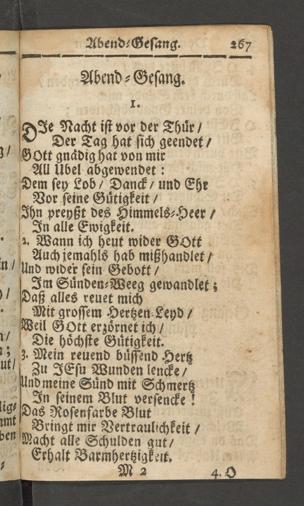 Abend-Gesang. 267
Abend-Gesang.
1.
DJe Nacht ist vor der Thür /
Der Tag hat sich geendet /
GOtt gnädig hat von mir
All Ubel abgewendet :
Dem sey Lob / Danck / und Ehr
Vor seine Gütigkeit /
Ihn preyßt des Himmels-Heer /
In alle Ewigkeit.
2. Wann ich heut wider GOtt
Auch jemahls hab mißhandlet /
Und wider sein Gebott /
Im Sünden-Weeg gewandlet ;
Daß alles reuet mich
Mit grossem Hertzen Leyd /
Weil GOtt erzörnet ich /
Die höchste Gütigkeit.
3. Mein reuend büssend Hertz
Zu JEsu Wunden lencke /
Und meine Sünd mit Schmertz
In seinem Blut versencke !
Das Rosenfarbe Blut
Bringt mir Vertraulichkeit /
Macht alle Schulden gut /
Erhalt Barmhertzigkeit.
M 2 4. O